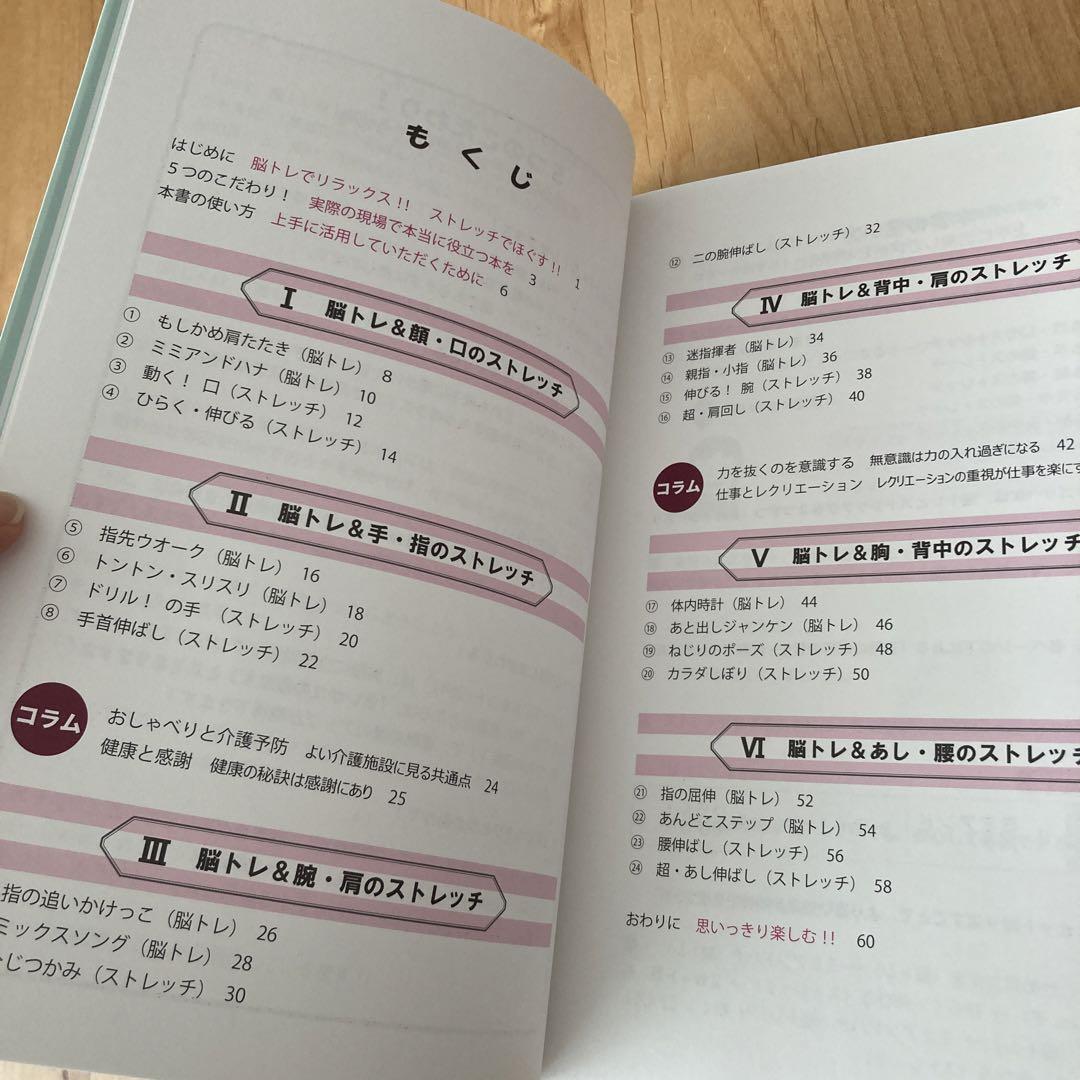 もくじ
はじめに 脳トレでリラックス!! ストレッチでほぐす!! 1
5つのこだわり! 実際の現場で本当に役立つ本を 3
本書の使い方 上手に活用していただくために 6
Ⅰ 脳トレ&顔・口のストレッチ
① もしかめ肩たたき（脳トレ） 8
② ミミアンドハナ（脳トレ） 10
③ 動く! 口（ストレッチ） 12
④ ひらく・伸びる（ストレッチ） 14
Ⅱ 脳トレ&手・指のストレッチ
⑤ 指先ウオーク（脳トレ） 16
⑥ トントン・スリスリ（脳トレ） 18
⑦ ドリル! の手 （ストレッチ） 20
⑧ 手首伸ばし（ストレッチ） 22
コラム
おしゃべりと介護予防 よい介護施設に見る共通点 24
健康と感謝 健康の秘訣は感謝にあり 25
Ⅲ 脳トレ&腕・肩のストレッチ
指の追いかけっこ（脳トレ） 26
ミックスソング（脳トレ） 28
じつかみ（ストレッチ） 30
⑫ 二の腕伸ばし（ストレッチ） 32
Ⅳ 脳トレ&背中・肩のストレッチ
⑬ 迷指揮者（脳トレ） 34
⑭ 親指・小指（脳トレ） 36
⑮ 伸びる! 腕（ストレッチ） 38
⑯ 超・肩回し（ストレッチ） 40
コラム
力を抜くのを意識する 無意識は力の入れ過ぎになる 42
仕事とレクリエーション レクリエーションの重視が仕事を楽にす
Ⅴ 脳トレ&胸・背中のストレッチ
⑰ 体内時計（脳トレ） 44
⑱ あと出しジャンケン（脳トレ） 46
⑲ ねじりのポーズ（ストレッチ） 48
⑳ カラダしぼり（ストレッチ）50
Ⅵ 脳トレ&あし・腰のストレッチ
㉑ 指の屈伸（脳トレ） 52
㉒ あんどこステップ（脳トレ） 54
㉓ 腰伸ばし（ストレッチ） 56
㉔ 超・あし伸ばし（ストレッチ） 58
おわりに 思いっきり楽しむ!! 60